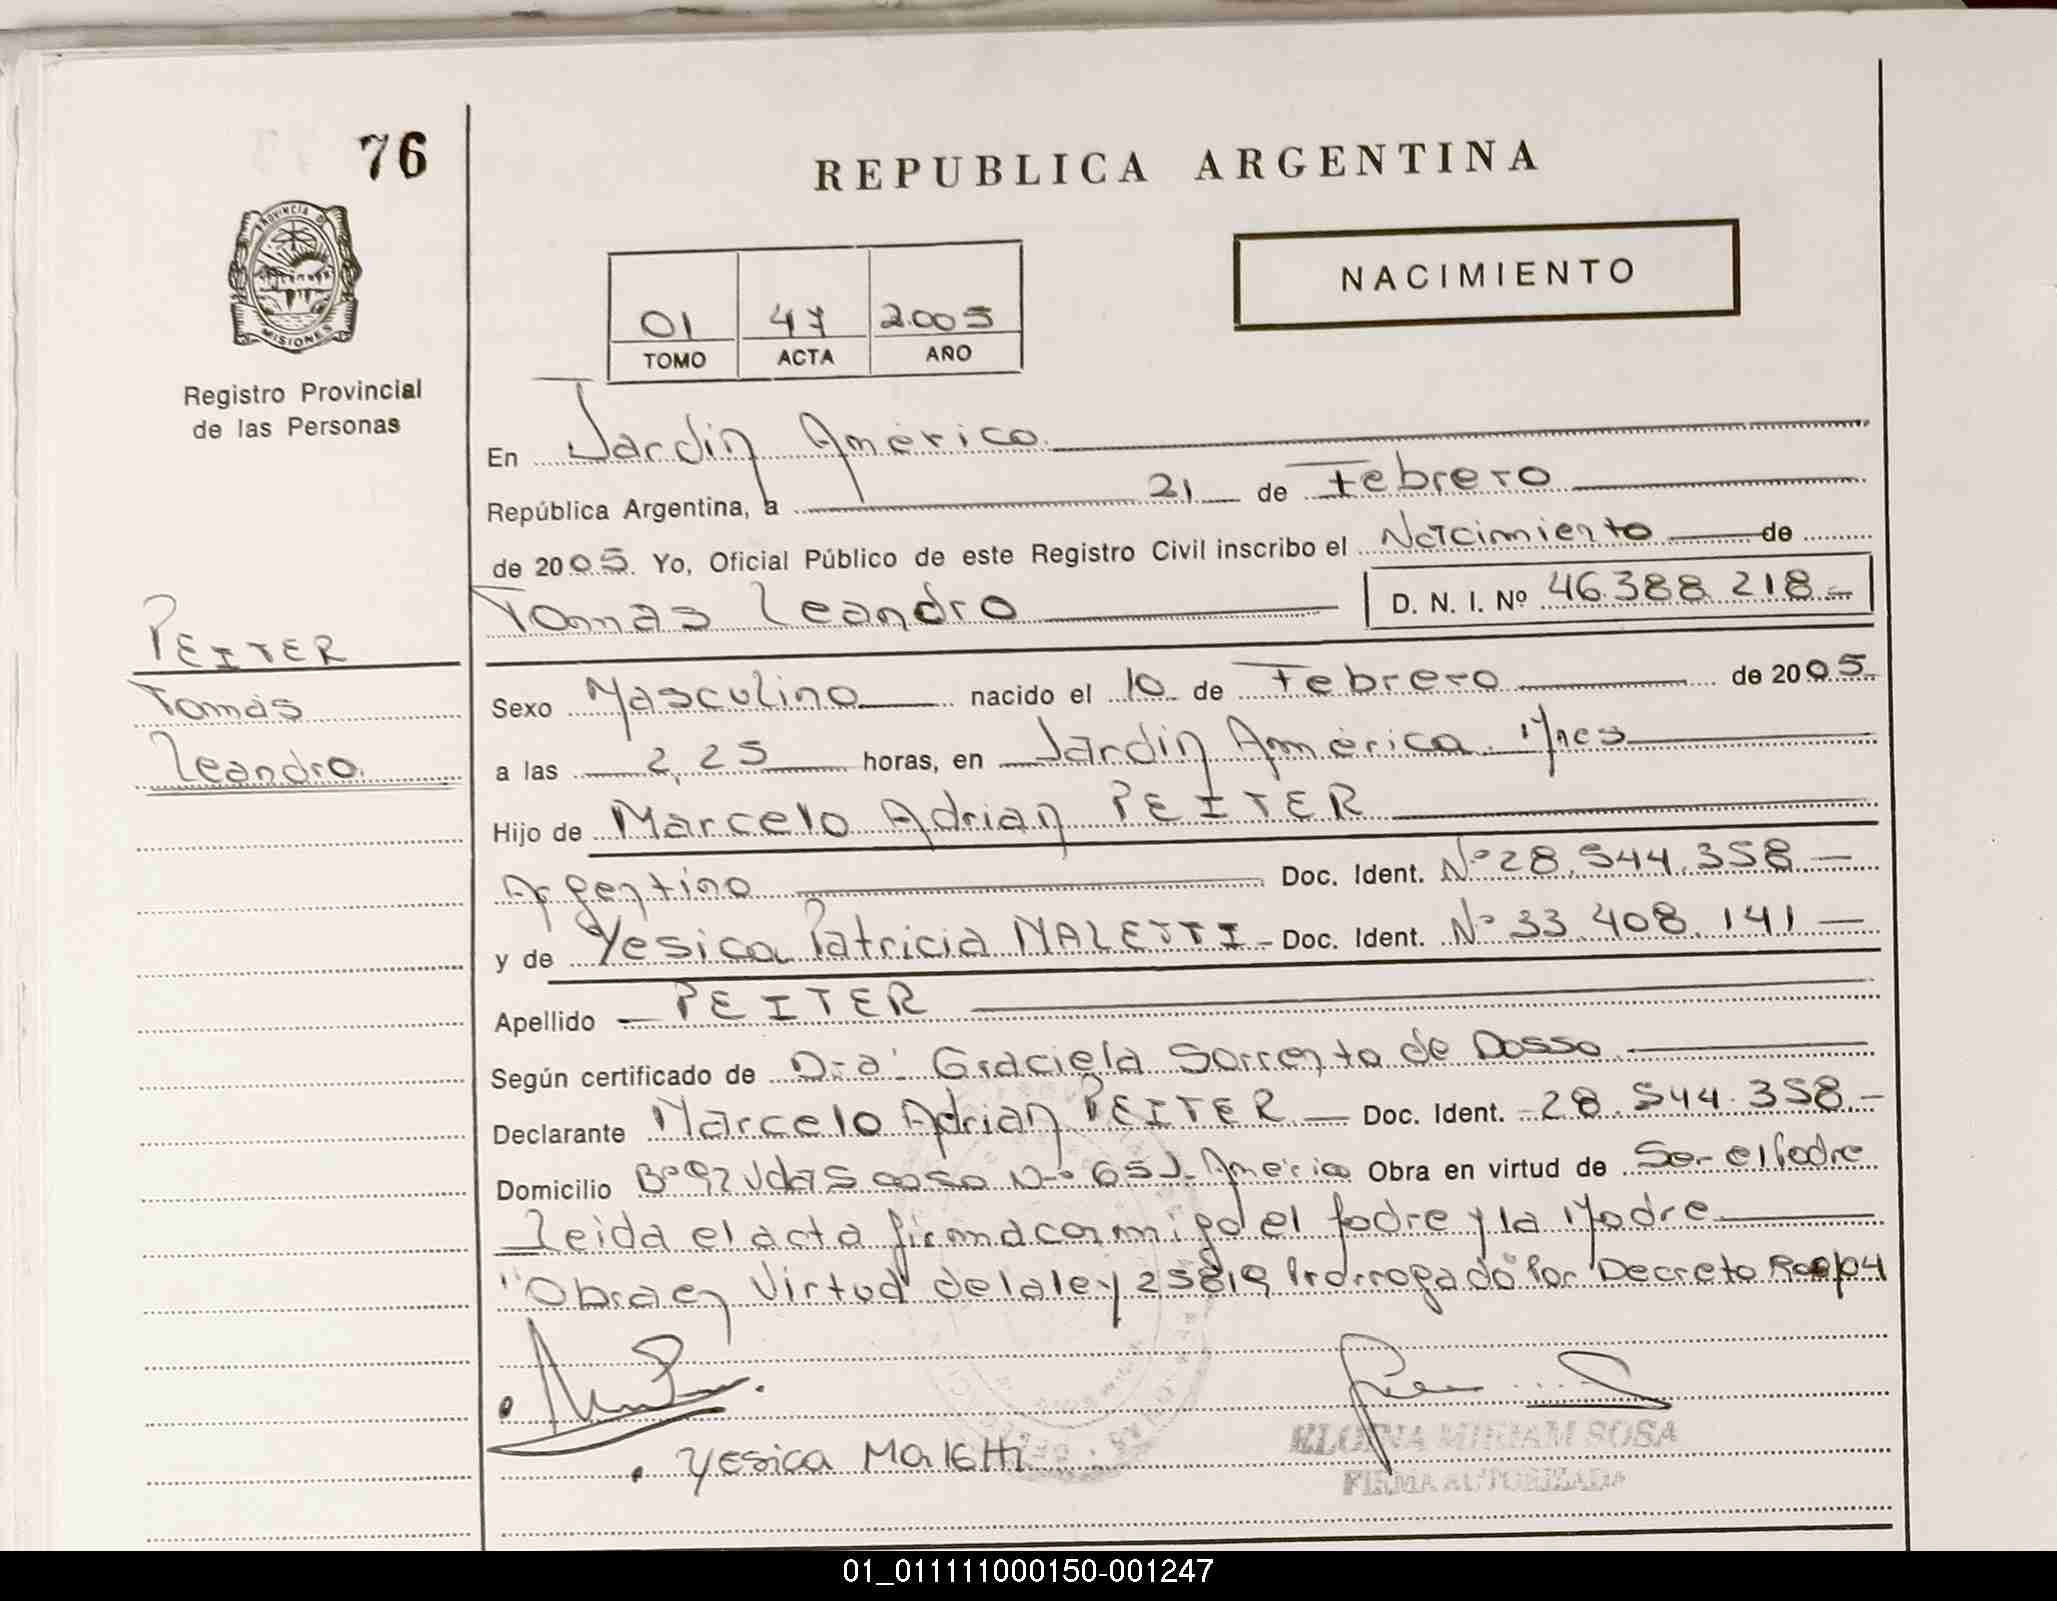 76
REPUBLICA ARGENTINA
PROVINCIA DE
MISIONES
NACIMIENTO
01 47 2.005
TOMO ACTA AÑO
Registro Provincial
de las Personas
En Jardin América
República Argentina, a 21 de Febrero
de 2005. Yo, Oficial Público de este Registro Civil inscribo el Nacimiento de
Tomas Leandro D. N. I. Nº 46.388.218-
PEITER
Tomás
Leandro.
Sexo Masculino nacido el 10 de Febrero de 2005.
a las 2,25 horas, en Jardin América. Mnes
Hijo de Marcelo Adrian PEITER
Argentino Doc. Ident. Nº 28.544.358-
y de Yesica Patricia MALETTI - Doc. Ident. Nº 33.408.141-
Apellido - PEITER
Según certificado de Dra. Graciela Sorrento de Dosso
Declarante Marcelo Adrian PEITER - Doc. Ident. - 28.544.358-
Domicilio casa Nº 65 J. América Obra en virtud de Ser el Padre
Leida el acta firma conmigo el Padre y la Madre
"Obra en Virtud de la ley 25819 Prorrogado Por Decreto
Yesica Maletti
MIRIAM SOSA
FIRMA AUTORIZADA
01_011111000150-001247